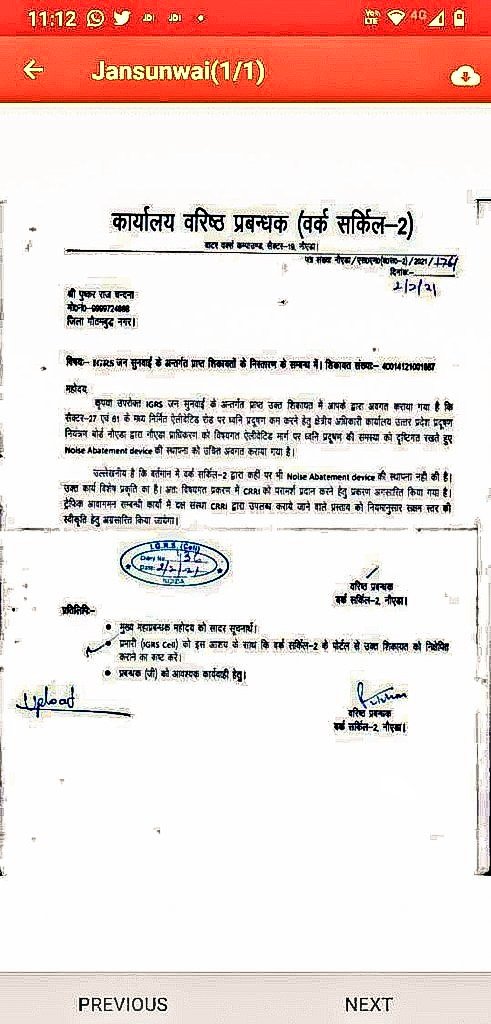 11:12
4G
Jansunwai(1/1)
कार्यालय वरिष्ठ प्रबन्धक (वर्क सर्किल-2)
वाटर वर्क्स कम्पाउण्ड, सैक्टर-19, नौएडा।
पत्र संख्या नौएडा/ /2021/1761
दिनांक:-
2/2/21
श्री पुष्कर राज चन्दना
जिला गौतमबुद्ध नगर।
विषयः- IGRS जन सुनवाई के अन्तर्गत प्राप्त शिकायतों के निस्तारण के सम्बन्ध में। शिकायत संख्या-
महोदय
कृपया उपरोक्त IGRS जन सुनवाई के अन्तर्गत प्राप्त उक्त शिकायत में आपके द्वारा अवगत कराया गया है कि
सैक्टर-27 एवं 61 के मध्य निर्मित ऐलीवेटिड रोड पर ध्वनि प्रदूषण कम करने हेतु क्षेत्रीय अधिकारी कार्यालय उत्तर प्रदेश प्रदूषण
नियंत्रण बोर्ड नौएडा द्वारा नौएडा प्राधिकरण को विषयगत ऐलीवेटिड मार्ग पर ध्वनि प्रदूषण की समस्या को दृष्टिगत रखते हुए
Noise Abatement device की स्थापना को उचित अवगत कराया गया है।
उल्लेखनीय है कि वर्तमान में वर्क सर्किल-2 द्वारा कहीं पर भी Noise Abatement device की स्थापना नहीं की है।
उक्त कार्य विशेष प्रकृति का है। अतः विषयगत प्रकरण में CRRI को परामर्श प्रदान करने हेतु प्रकरण अग्रसारित किया गया है।
ट्रैफिक आवागमन सम्बन्धी कार्यों में दक्ष संस्था CRRI द्वारा उपलब्ध कराये जाने वाले प्रस्ताव को नियमानुसार सक्षम स्तर की
स्वीकृति हेतु अग्रसारित किया जायेगा।
I.G.R.S. (Cell)
Diary No. 436
Date: 2/2/21
NOIDA
वरिष्ठ प्रबन्धक
वर्क सर्किल-2, नौएडा।
प्रतिलिपिः-
● मुख्य महाप्रबन्धक महोदय को सादर सूचनार्थ।
● प्रभारी (IGRS Cell) को इस आशय के साथ कि वर्क सर्किल-2 के पोर्टल से उक्त शिकायत को निक्षेपित
कराने का कष्ट करें।
● प्रबन्धक (जी) को आवश्यक कार्यवाही हेतु।
Upload
वरिष्ठ प्रबन्धक
वर्क सर्किल-2, नौएडा।
PREVIOUS
NEXT